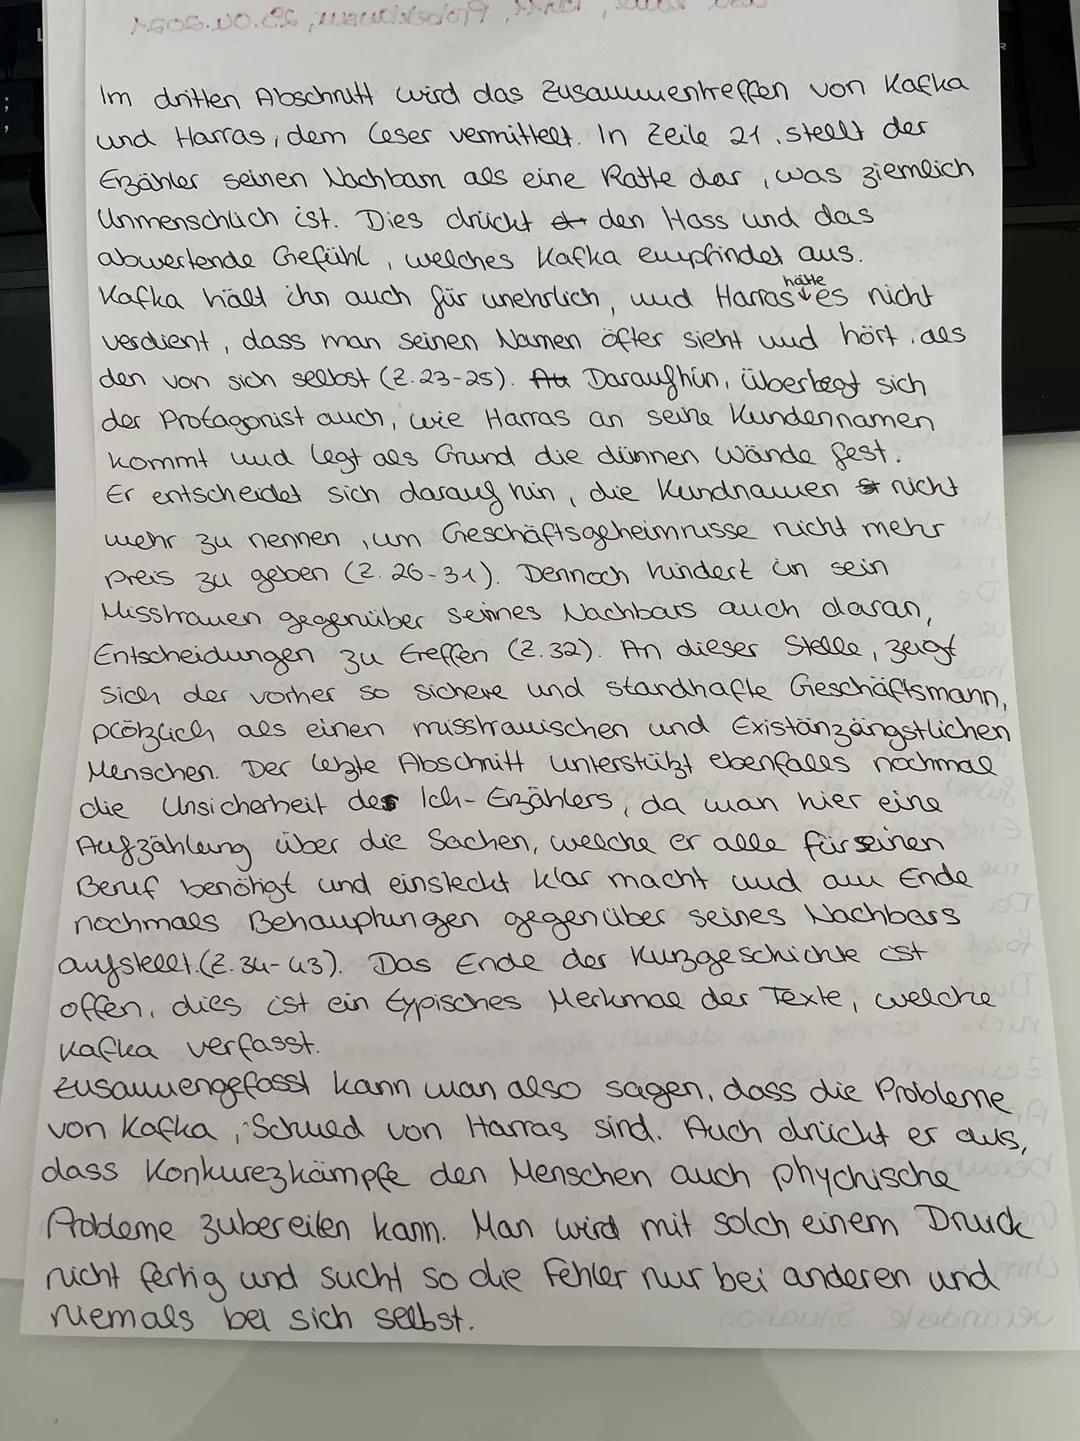 Im dritten Abschnitt wird das Zusammentreffen von Kafka
und Harras, dem Leser vermittelt. In Zeile 21, stellt der
Erzähler seinen Nachbarn als eine Ratte dar, was ziemlich
Unmenschlich ist. Dies drückt den Hass und das
abwertende Gefühl, welches Kafka empfindet aus.
Kafka hält ihn auch für unehrlich, und Harras hätte es nicht
verdient, dass man seinen Namen öfter sieht und hört, als
den von sich selbst (Z. 23-25). Daraufhin, überlegt sich
der Protagonist auch, wie Harras an seine Kundennamen
kommt und legt als Grund die dünnen Wände fest.
Er entscheidet sich darauf hin, die Kundnamen nicht
mehr zu nennen, um Geschäftsgeheimnisse nicht mehr
preis zu geben (Z. 26-31). Dennoch hindert in sein
Misstrauen gegenüber seines Nachbars auch daran,
Entscheidungen zu treffen (Z. 32). An dieser Stelle, zeigt
sich der vorher so sichere und standhafte Geschäftsmann,
plötzlich als einen misstrauischen und Existänzängstlichen
Menschen. Der letzte Abschnitt unterstützt ebenfalls nochmal
die Unsicherheit des Ich-Erzählers, da man hier eine
Aufzählung über die Sachen, welche er alle für seinen
Beruf benötigt und einsteckt klar macht und am Ende
nochmals Behauptungen gegenüber seines Nachbars
aufstellt. (Z. 34-43). Das Ende der Kurzgeschichte ist
offen, dies ist ein typisches Merkmal der Texte, welche
Kafka verfasst.
Zusammengefasst kann man also sagen, dass die Probleme
von Kafka, Schuld von Harras sind. Auch drückt er aus,
dass Konkurezkämpfe den Menschen auch phychische
Probleme zubereiten kann. Man wird mit solch einem Druck
nicht fertig und sucht so die Fehler nur bei anderen und
niemals bei sich selbst.